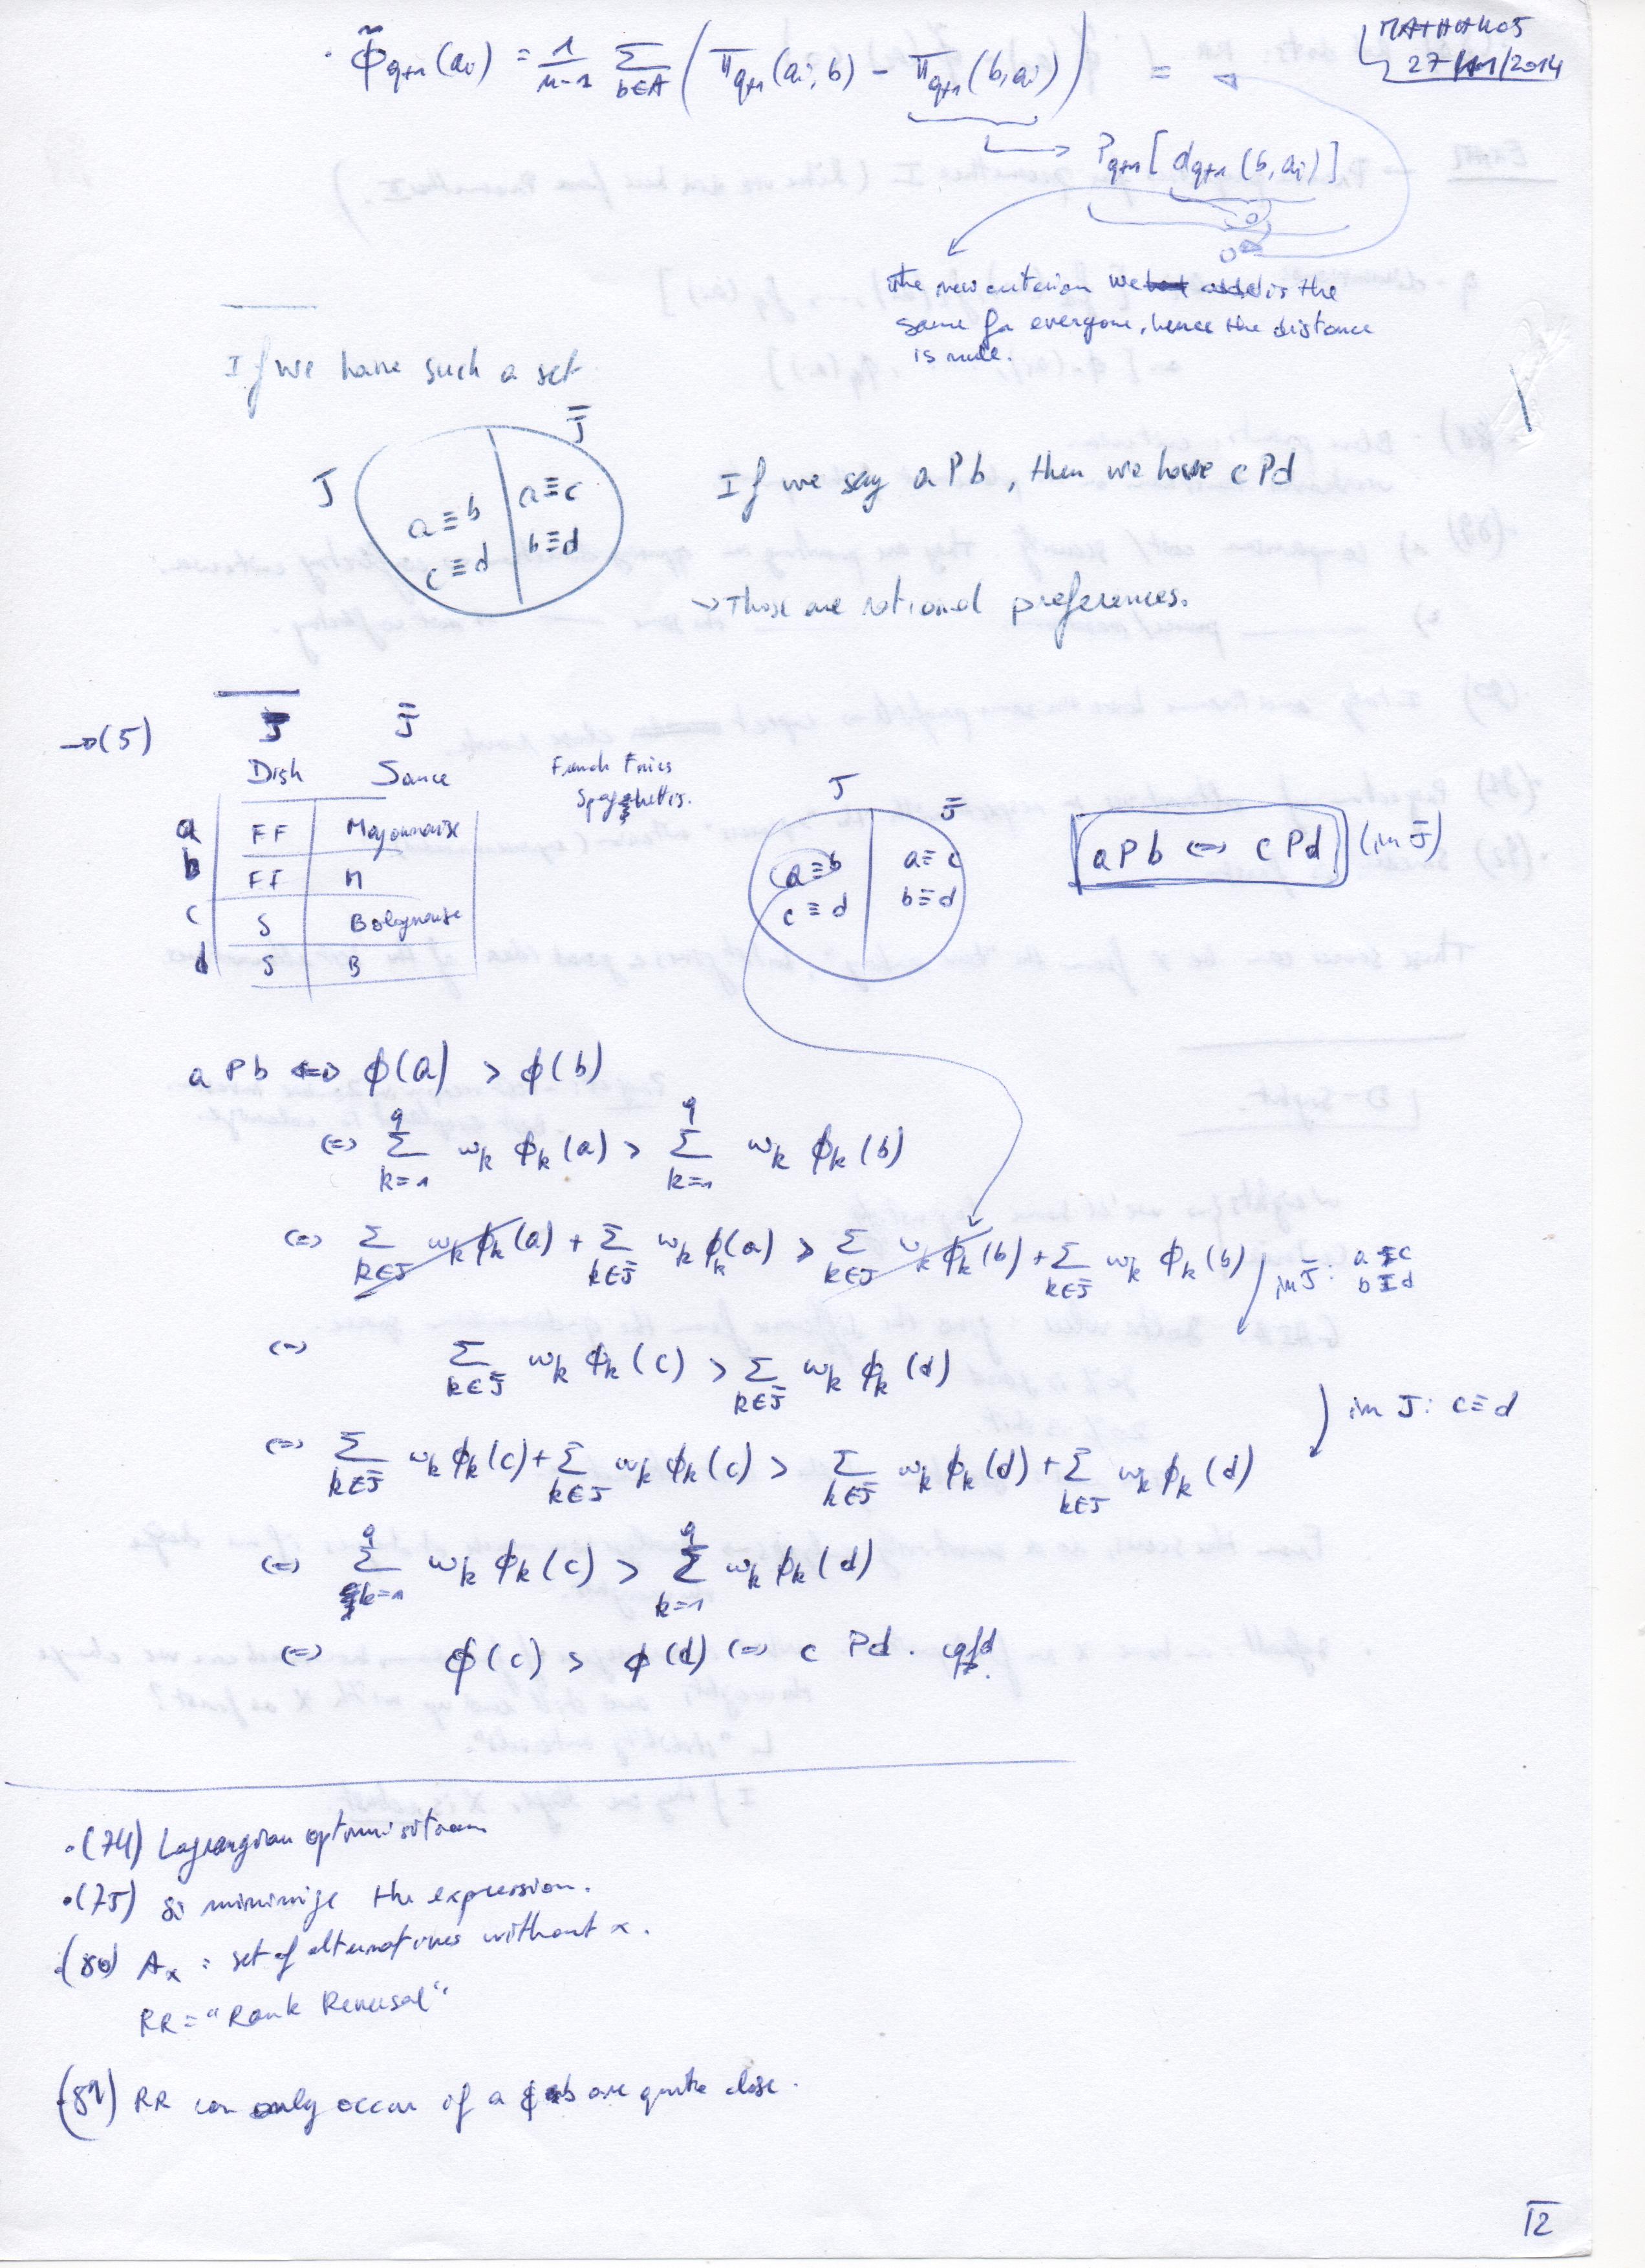 MATHH405
27/11/2014
· Φ̃q+1(ai) = 1/(n-1) Σ b∈A ( πq+1(ai, b) - πq+1(b, ai) ) =
→ Pq+1[dq+1(b, ai)]
0
0
The new criterion we is the
same for everyone, hence the distance
is nulle.
If we have such a set
J J̄
a ≡ b a ≡ c
c ≡ d b ≡ d
If we say a P b, then we have c P d
→ Those are rational preferences.
→(5) J J̄
Dish Sauce
French Fries
Spaghettis.
a FF Mayonnaise
b FF M
c S Bolognaise
d S B
J J̄
a ≡ b a ≡ c
c ≡ d b ≡ d
a P b <=> c P d (in J̄)
a P b <=> ϕ(a) > ϕ(b)
<=> Σ k=1 q wk ϕk(a) > Σ k=1 q wk ϕk(b)
<=> Σ k∈J wk ϕk(a) + Σ k∈J̄ wk ϕk(a) > Σ k∈J wk ϕk(b) + Σ k∈J̄ wk ϕk(b)
in J̄: a I c
b I d
<=> Σ k∈J̄ wk ϕk(c) > Σ k∈J̄ wk ϕk(d)
in J: c ≡ d
<=> Σ k∈J̄ wk ϕk(c) + Σ k∈J wk ϕk(c) > Σ k∈J̄ wk ϕk(d) + Σ k∈J wk ϕk(d)
<=> Σ k=1 q wk ϕk(c) > Σ k=1 q wk ϕk(d)
<=> ϕ(c) > ϕ(d) <=> c P d. cqfd.
·(74) Lagrangian optimisation
·(75) si minimize the expression.
·(80) Ax = set of alternatives without x.
RR = "Rank Reversal"
·(81) RR can only occur if a & b are quite close.
12